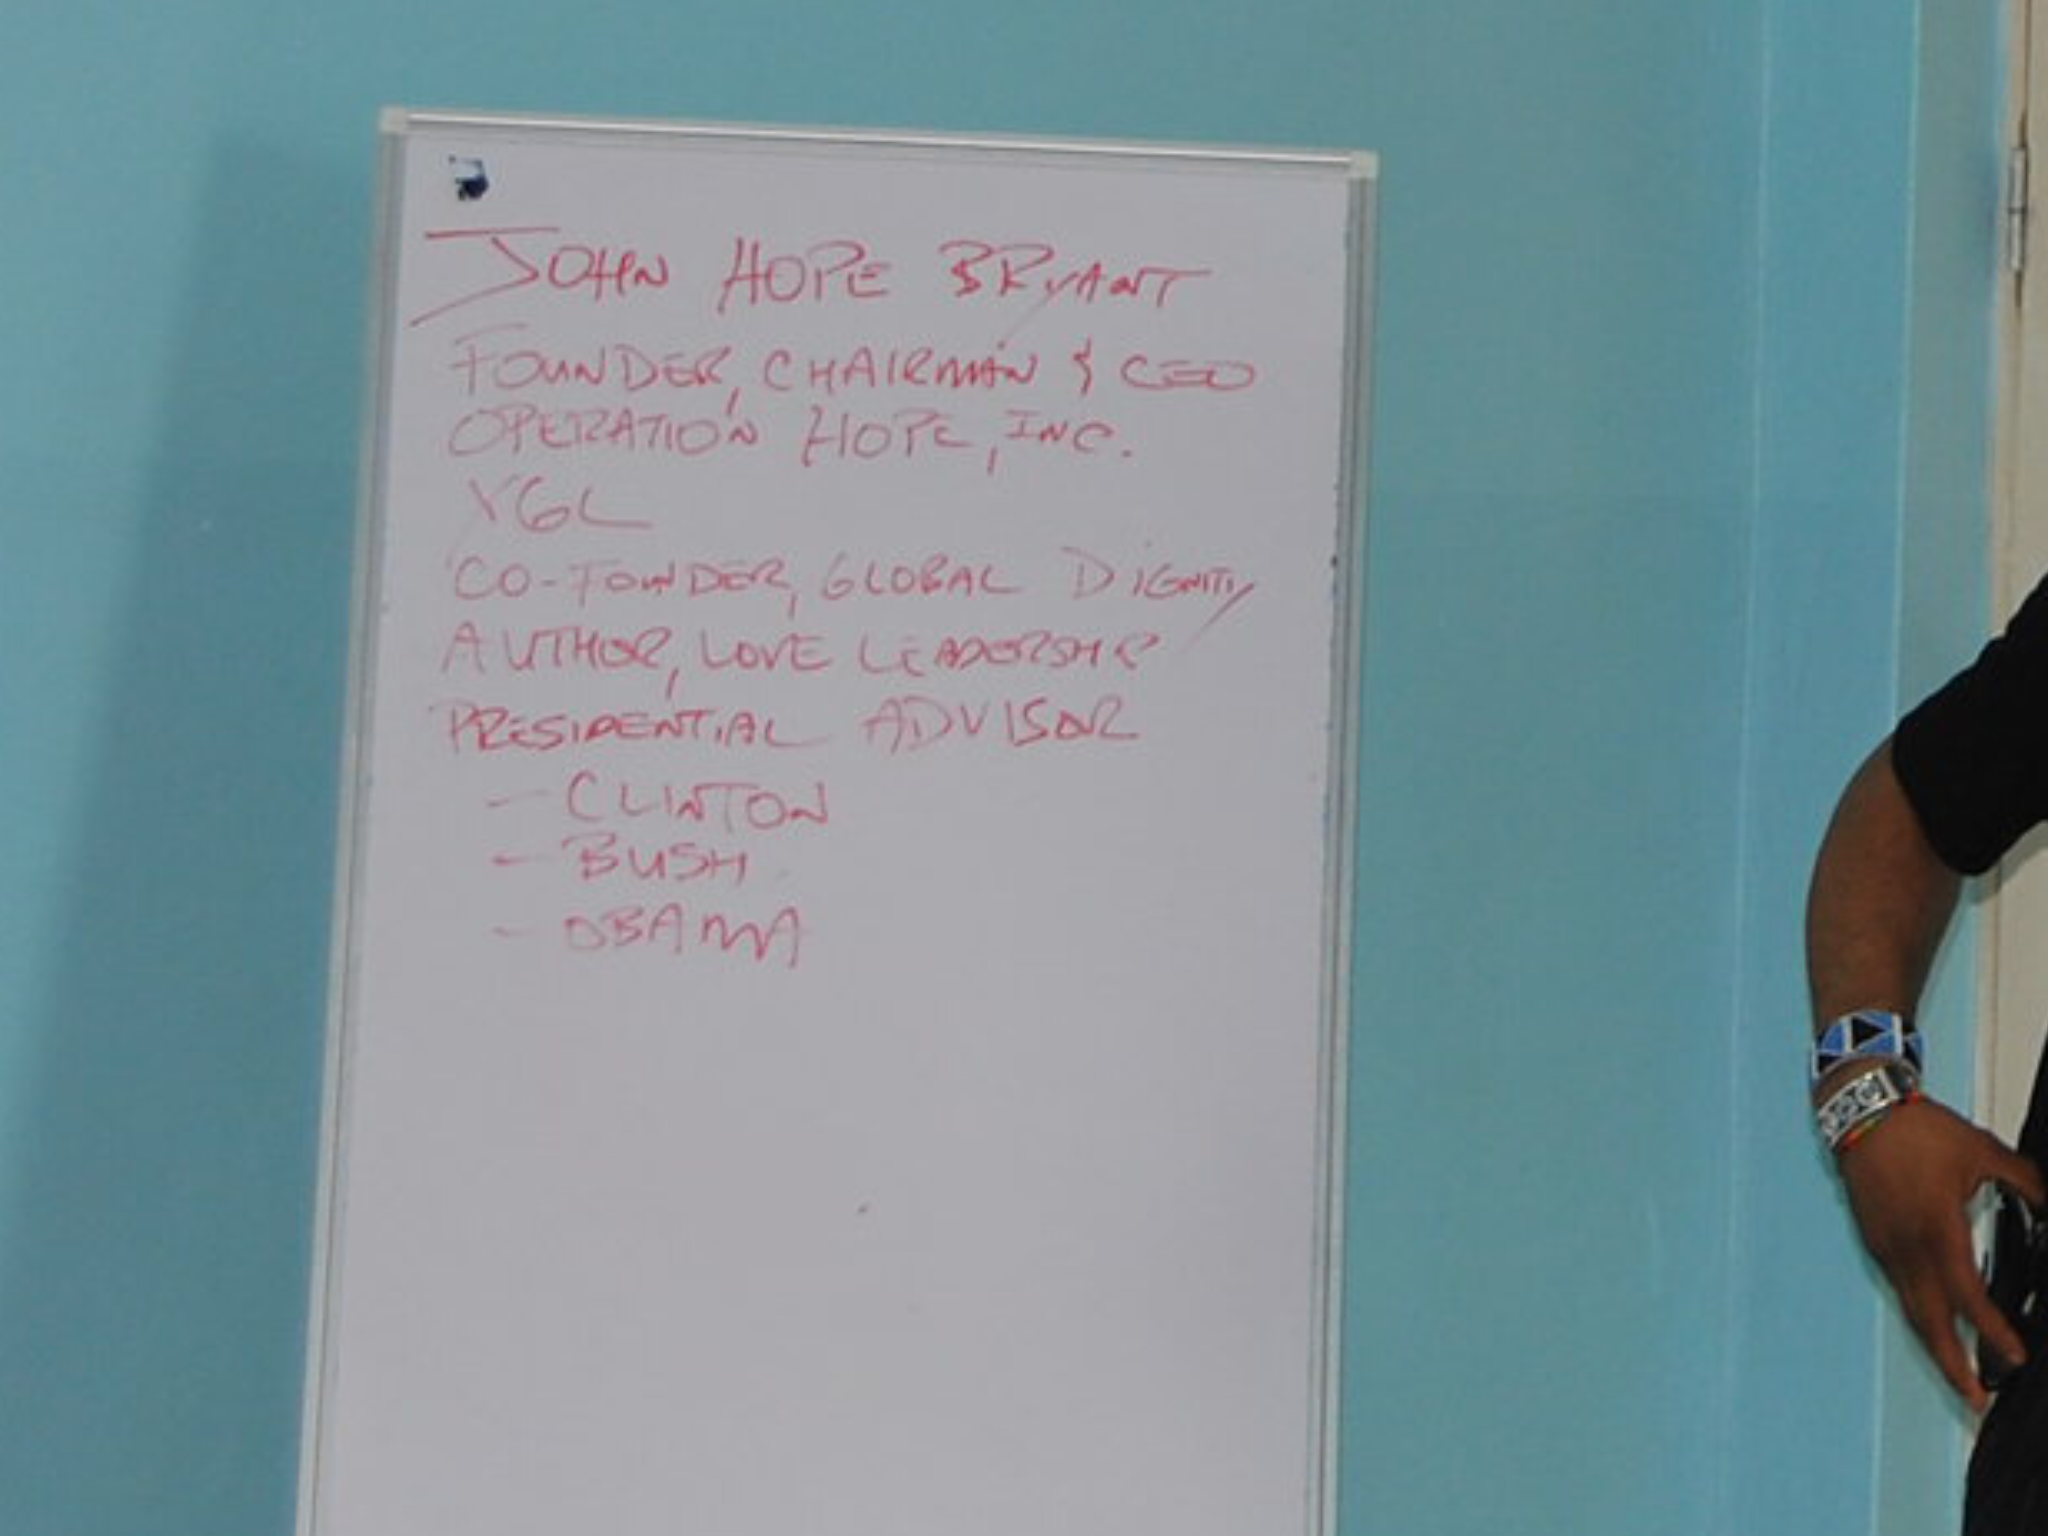 JOHN HOPE BRYANT
FOUNDER, CHAIRMAN & CEO
OPERATION HOPE, INC.
YGL
CO-FOUNDER, GLOBAL DIGNITY
AUTHOR, LOVE LEADERSHIP
PRESIDENTIAL ADVISOR
- CLINTON
- BUSH
- OBAMA